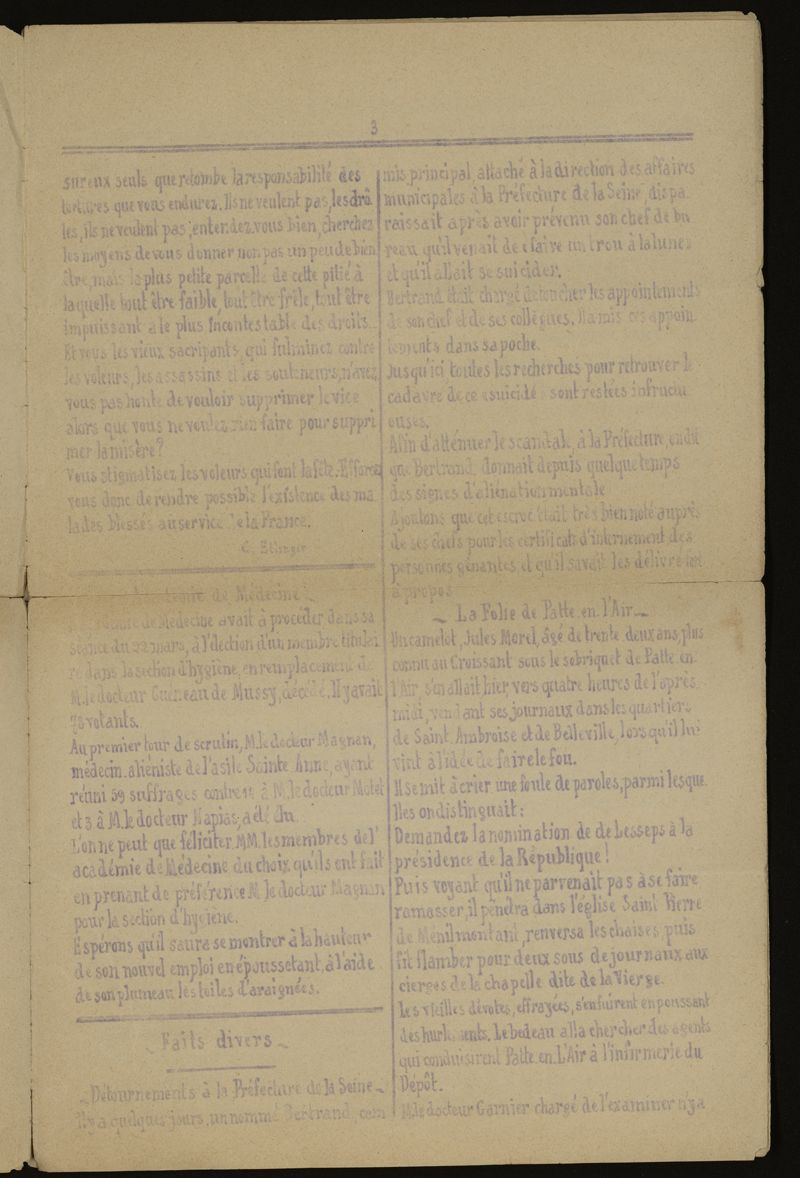 3
sur eux seuls que retombe la responsabilité des
tortures que vous endurez. Ils ne veulent pas, les drô
les, ils ne veulent pas; entendez vous bien, cherchez
les moyens de vous donner non pas un peu de bien
être, mais la plus petite parcelle de cette pitié à
laquelle tout être faible, tout être frêle, tout être
impuissant a le plus incontestable des droits.
Et vous les vieux sacripants, qui fulminez contre
les voleurs, les assassins et les souteneurs, n'avez
vous pas honte de vouloir supprimer le vice
alors que vous ne voulez rien faire pour suppri
mer la misère?
Vous stigmatisez les voleurs qui font la fête. Efforcez
vous donc de rendre possible l'existence des ma
lades blessés au service de la France.
Académie de Médecine
L'Académie de Médecine avait à procéder, dans sa
séance du 22 mars, à l'élection d'un membre titulai
re dans la section d'hygiène, en remplacement de
M. le docteur Guéneau de Mussy, décédé. Il y avait
78 votants.
Au premier tour de scrutin, M. le docteur Magnan,
médecin aliéniste de l'asile Sainte Anne, ayant
réuni 59 suffrages contre à M. le docteur Motet
et 3 à M. le docteur Napias, a été élu.
L'on ne peut que féliciter MM. les membres de l'
académie de Médecine du choix qu'ils ont fait
en prenant de préférence M. le docteur Magnan
pour la section d'hygiène.
Espérons qu'il saura se montrer à la hauteur
de son nouvel emploi en époussetant, à l'aide
de son plumeau les toiles d'araignées.
Faits divers
Détournements à la Préfecture de la Seine
Il y a quelques jours, un nommé Bertrand, com
mis principal attaché à la direction des affaires
municipales à la Préfecture de la Seine, dispa
raissait après avoir prévenu son chef de bu
reau qu'il venait de « faire un trou à la lune »
et qu'il allait se suicider.
Bertrand était chargé de toucher les appointements
de son chef et de ses collègues. Il a mis ces appoin
tements dans sa poche.
Jusqu'ici toutes les recherches pour retrouver le
cadavre de ce « suicidé » sont restées infructu
euses.
Afin d'atténuer le scandale, à la Préfecture, on dit
que Bertrand donnait depuis quelque temps
des signes d'aliénation mentale
Ajoutons que cet escroc était très bien noté auprès
de ses chefs pour les certificats d'internement des
personnes gênantes, et qu'il savait les délivrer fort
à propos
La Folie de Patte en l'Air
Un camelot, Jules Morel, âgé de trente deux ans, plus
connu au Croissant sous le sobriquet de Patte en
l'Air, s'en allait hier, vers quatre heures de l'après
midi, vendant ses journaux dans les quartiers
de Saint Ambroise et de Belleville, lorsqu'il lui
vint à l'idée de faire le fou.
Il se mit à crier une foule de paroles, parmi lesque
lles on distinguait:
Demandez la nomination de de Lesseps à la
présidence de la République!
Puis voyant qu'il ne parvenait pas à se faire
ramasser, il pénétra dans l'église Saint Pierre
de Ménilmontant, renversa les chaises, puis
fit flamber pour deux sous de journaux aux
cierges de la chapelle dite de la Vierge.
Les vieilles dévotes, effrayées, s'enfuirent en poussant
des hurlements. Le bedeau alla chercher des agents
qui conduisirent Patte en L'Air à l'infirmerie du
Dépôt.
M. le docteur Garnier chargé de l'examiner n'y a